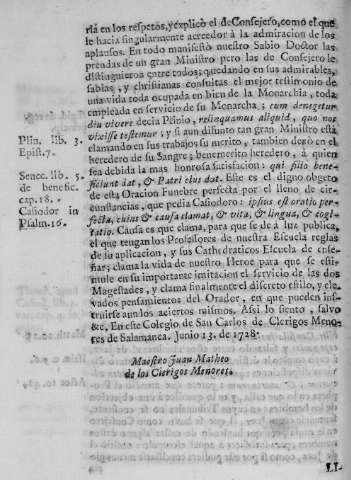 ria en los respetos, y explicó el de Consejero, como el que
le hacia singularmente acreedor à la admiracion de los
aplausos. En todo manifestò nuestro Sabio Doctor las
prendas de un gran Ministro pero las de Consejero le
distinguieron entre todos; quedando en sus admirables,
sabias, y christianas consultas el mejor testimonio de
una vida toda ocupada en bien de la Monarchia, toda
empleada en servicio de su Monarcha; cum denegetur
diu vivere decia Plinio, relinquamus aliquid, quo nos
vixisse testemur; y si aun difunto tan gran Ministro està
clamando en sus trabajos su merito, tambien dexò en el
heredero de su Sangre, benemerito heredero, à quien
sea debida la mas honrosa satisfacion: qui filio bene-
ficium dat, & Patri eius dat. Este es el digno objeto
de esta Oracion Funebre perfecta por el lleno de cir-
cunstancias, que pedia Casiodoro: ipsius est oratio per-
fecta, cuius & causa clamat, & vita, & lingua, & cogi-
tatio. Causa es que clama, para que se dè à luz publica,
el que tengan los Professores de nuestra Escuela reglas
de su aplicacion, y sus Cathedraticos Escuela de ense-
ñar; clama la vida de nuestro Heroe para que se esti-
mule en su importante imitacion el servicio de las dos
Magestades, y clama finalmente el discreto estilo, y ele-
vados pensamientos del Orador, en que pueden ins-
truirse aun los aciertos mismos. Assi lo siento, salvo
&c. En este Colegio de San Carlos de Clerigos Meno-
res de Salamanca. Junio 13. de 1728.
Maestro Juan Matheo
de los Clerigos Menores.
Plin. lib. 3.
Epist. 7.
Senec. lib. 5.
de benefic.
cap. 18.
Casiodor in
Psalm. 16.
LI-